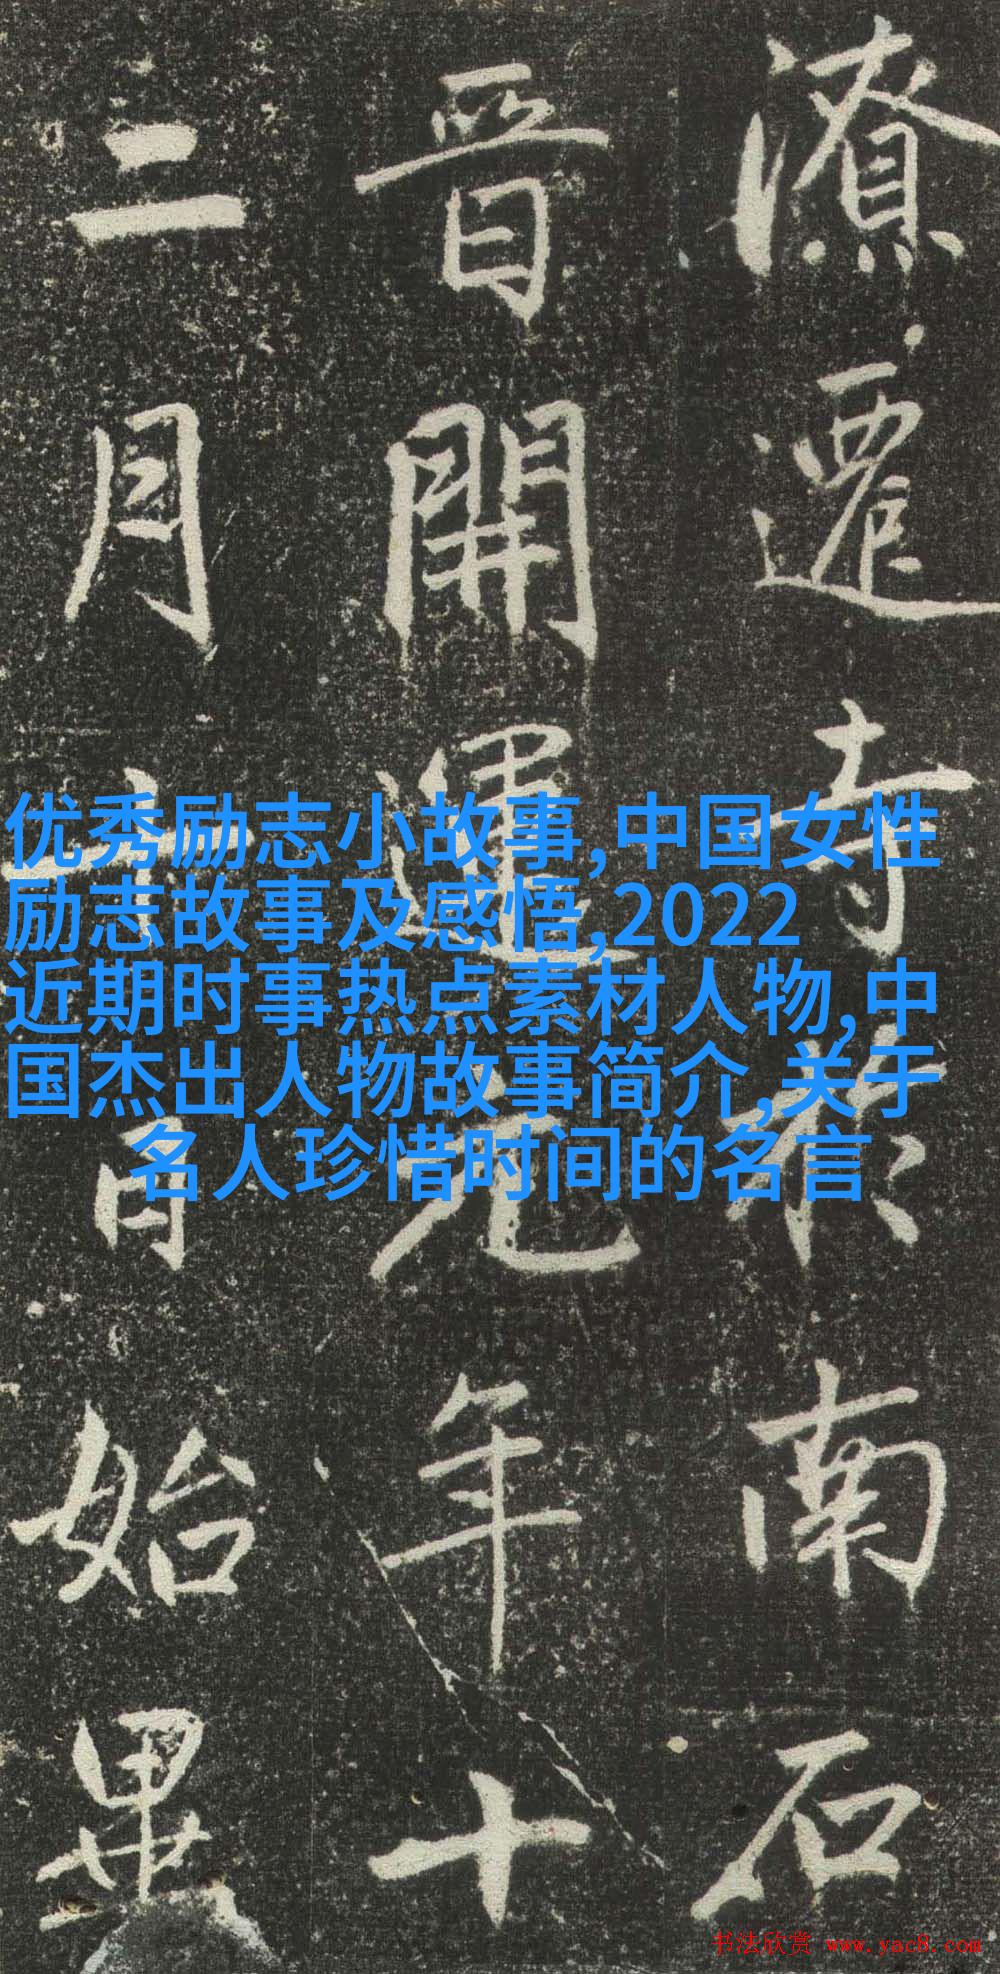 潦遷寺於南石
晉開運元年十
二月十一日始畢
优秀励志小故事,中国女性
励志故事及感悟,2022
近期时事热点素材人物,中
国杰出人物故事简介,关于
名人珍惜时间的名言
书法欣赏 www.yac8.com